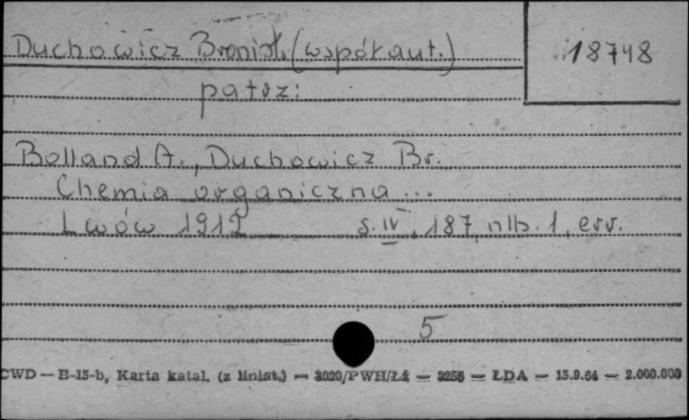 Duchowicz Bronisł. (współaut.)
18748
patrz:
Bolland A., Duchowicz Br.
Chemia organiczna ...
Lwów 1912 s. IV, 187, nlb. 1, err.
5
CWD — B-15-b, Karta katal. (z liniat.) — 3020/PWH/Łź — 3256 — ŁDA — 15.9.64 — 2.000.000